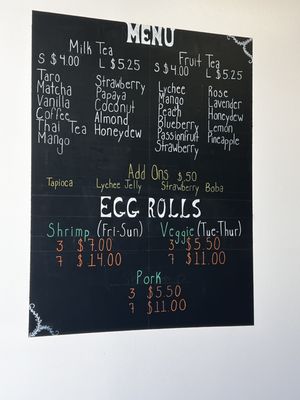 MENU
Milk Tea
S $4.00 L $5.25
Taro
Matcha
Vanilla
Coffee
Thai Tea
Mango
Strawberry
Papaya
Coconut
Almond
Honeydew
Fruit Tea
S $4.00 L $5.25
Lychee
Mango
Peach
Blueberry
Passionfruit
Strawberry
Rose
Lavender
Honeydew
Lemon
Pineapple
Add Ons $.50
Tapioca Lychee Jelly Strawberry Boba
EGG ROLLS
Shrimp (Fri-Sun)
3 $7.00
7 $14.00
Veggie (Tue-Thur)
3 $5.50
7 $11.00
Pork
3 $5.50
7 $11.00